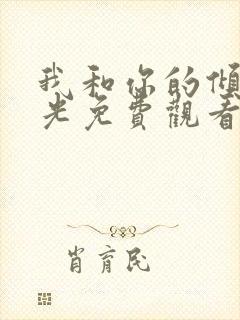 我和你的傾
光免費觀看
肖育民